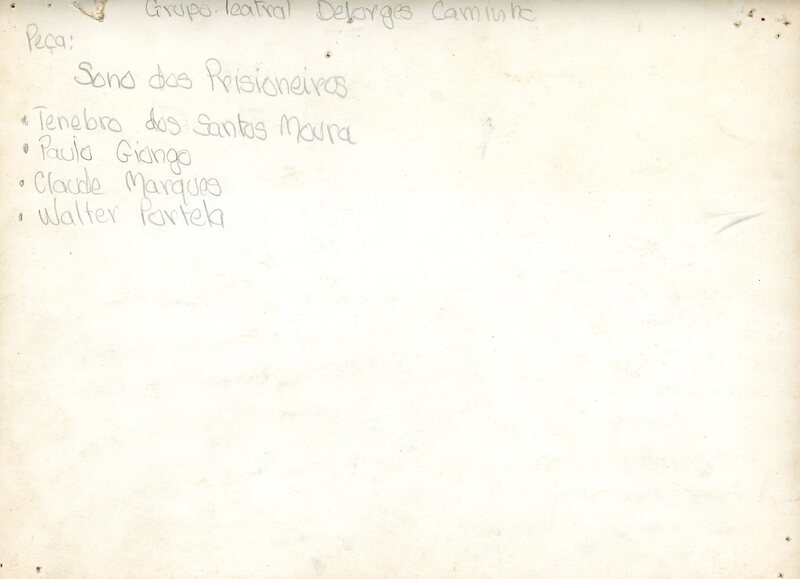 Grupo Teatral Delorges Caminha
Peça:
Sono dos Prisioneiros
• Tenebro dos Santos Moura
• Paulo Giongo
• Claude Marques
• Walter Portela